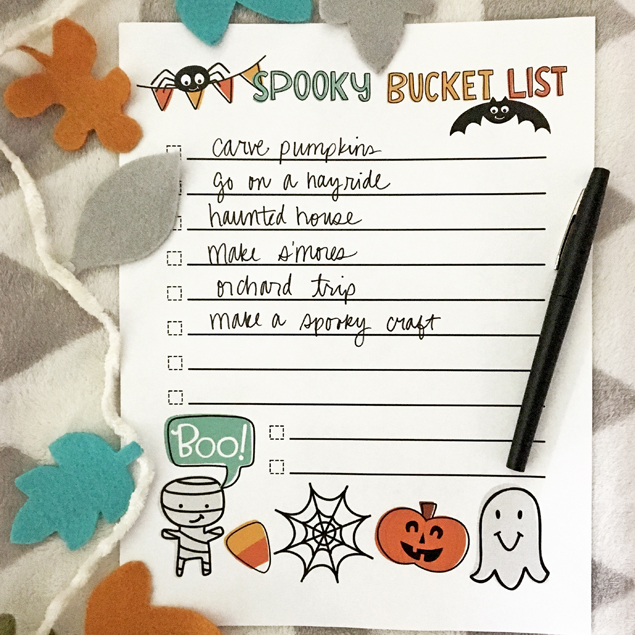 SPOOKY BUCKET LIST
carve pumpkins
go on a hayride
haunted house
make s'mores
orchard trip
make a spooky craft
Boo!